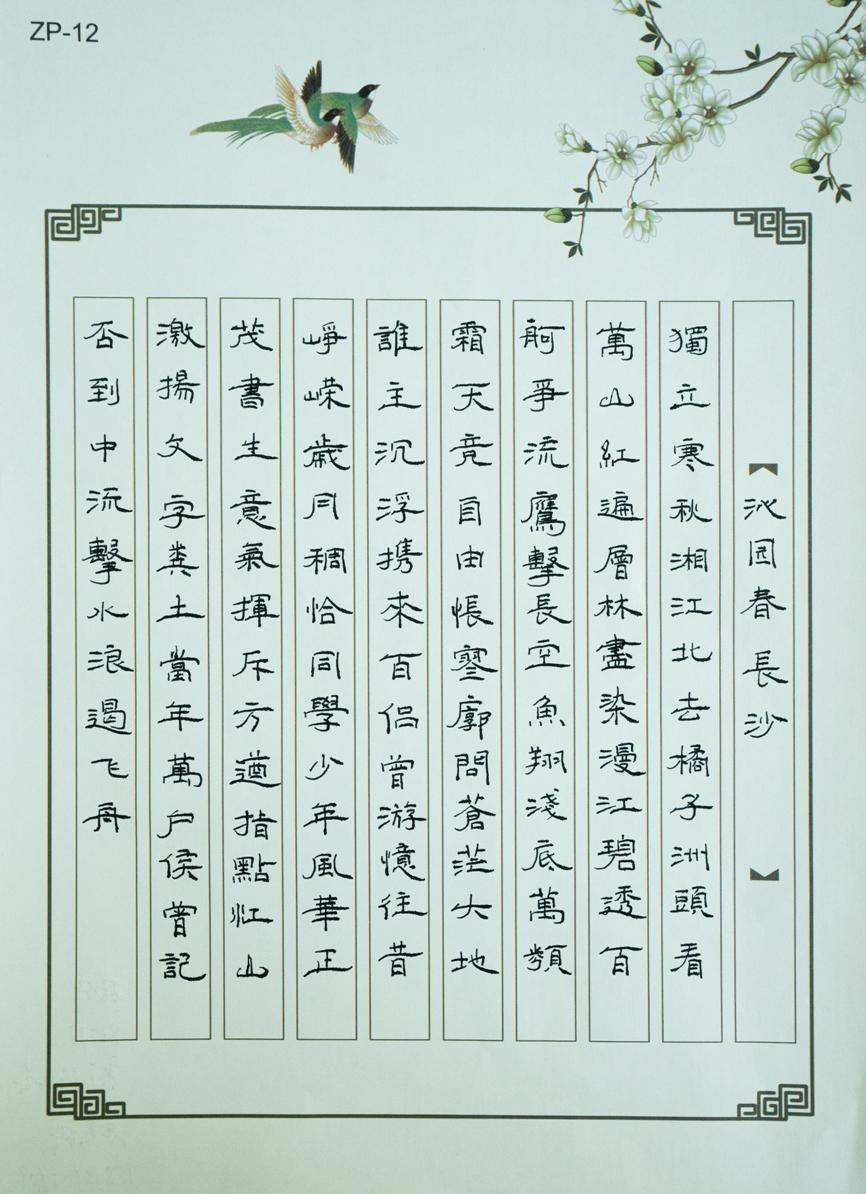 ZP-12
【沁园春長沙】
獨立寒秋湘江北去橘子洲頭看
萬山紅遍層林盡染漫江碧透百
舸爭流鷹擊長空魚翔淺底萬類
霜天竞自由悵寥廓問蒼茫大地
誰主沉浮携來百侣曾游憶往昔
崢嵘歲月稠恰同學少年風華正
茂書生意氣揮斥方遒指點江山
激揚文字粪土當年萬户侯曾記
否到中流擊水浪遏飞舟